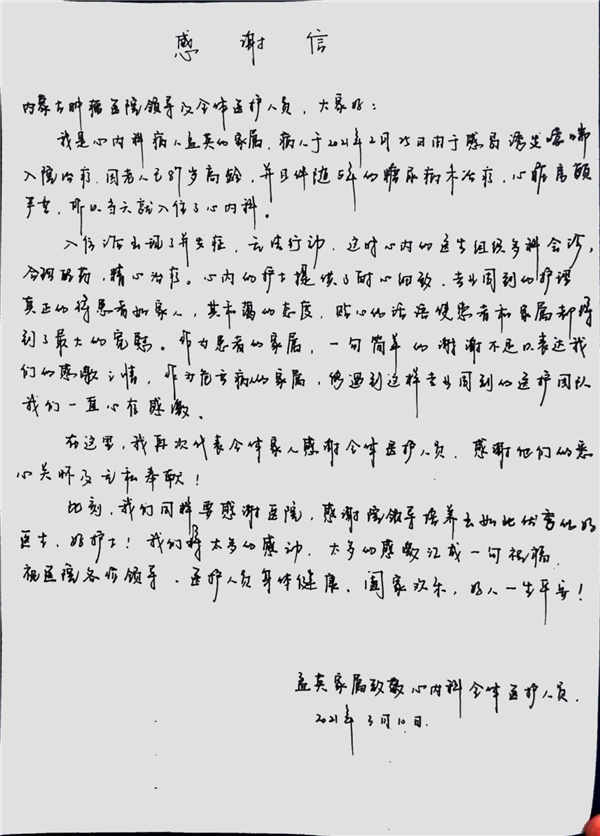 感谢信
内蒙古肿瘤医院领导及全体医护人员，大家好：
我是心内科病人孟英的家属，病人于2021年2月25日由于感冒诱发哮喘
入院治疗，因老人已87岁高龄，并且伴随5年的糖尿病未治疗，心脏房颤
严重，所以当天就入住了心内科。
入住后出现了并发症，无法行动，这时心内的医生组织多科会诊，
合理用药，精心治疗。心内的护士提供了耐心细致、专业周到的护理
真正的待患者如家人，其和蔼的态度，贴心的话语使患者和家属都得
到了最大的宽慰。作为患者的家属，一句简单的谢谢不足以表达我
们的感激之情，作为危重病人的家属，能遇到这样专业周到的医护团队
我们一直心存感激。
在这里，我再次代表全体家人感谢全体医护人员，感谢他们的悉
心关怀及无私奉献！
此刻，我们同样要感谢医院，感谢院领导培养出如此优秀的好
医生，好护士！我们将太多的感动，太多的感激汇成一句祝福，
祝医院各位领导、医护人员身体健康、阖家欢乐，好人一生平安！
孟英家属致敬心内科全体医护人员.
2021年3月10日.